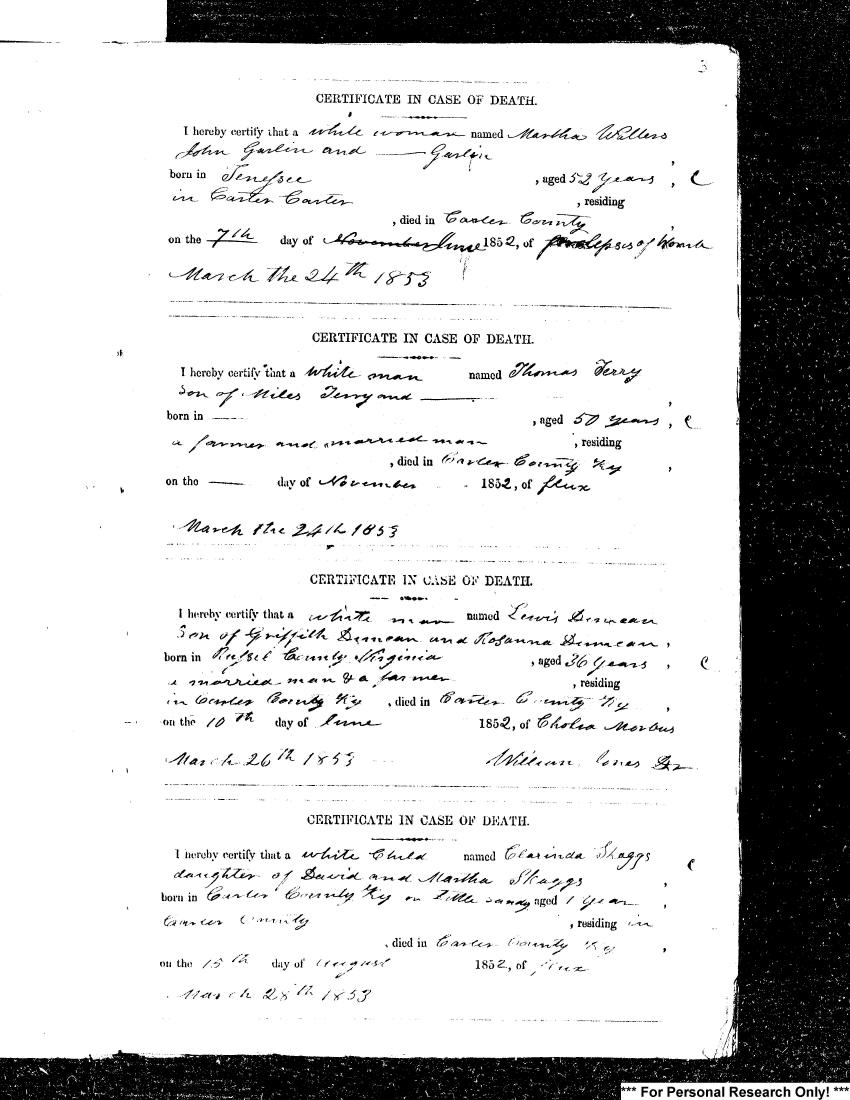 3
CERTIFICATE IN CASE OF DEATH.
I hereby certify that a white woman named Martha Wallers
John Garlin and —— Garlin
born in Tenessee , aged 52 years , C
in Carter Carter , residing
, died in Carter County
on the 7th day of November June 1852, of prolepsis of Womb
March the 24th 1853
CERTIFICATE IN CASE OF DEATH.
I hereby certify that a white man named Thomas Terry
Son of Miles Terry and ——
born in —— , aged 50 years , C
a farmer and married man , residing
, died in Carter County Ky ,
on the —— day of November 1852, of flux
March the 24th 1853
CERTIFICATE IN CASE OF DEATH.
I hereby certify that a white man named Lewis Duncan
Son of Griffith Duncan and Rosanna Duncan ,
born in Russel County Virginia , aged 36 years , C
a married man & a farmer , residing
in Carter County Ky , died in Carter County Ky ,
on the 10th day of June 1852, of Cholra Morbus
March 26th 1853 William Jones
CERTIFICATE IN CASE OF DEATH.
I hereby certify that a white Child named Clarinda Skaggs C
daughter of David and Martha Skaggs ,
born in Carter County Ky on little sandy, aged 1 year ,
Carter County , residing in
, died in Carter County Ky ,
on the 15th day of August 1852, of flux
March 28th 1853
*** For Personal Research Only! ***